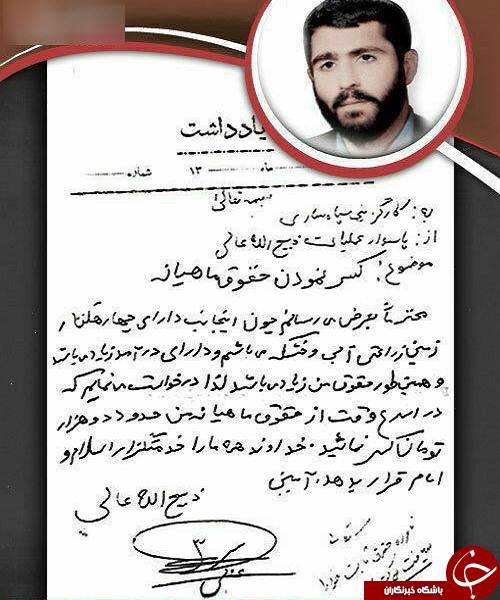 یادداشت
شماره ـــــــ ۱۳ ماه ـــــــ
بسمه تعالی
به: کارگزینی سپاه ساری
از: پاسدار عملیات ذبیح الله عالی
موضوع: کسر نمودن حقوق ماهیانه
محترماً بعرض می رسانم چون اینجانب دارای چهار هکتار
زمین زراعتی آبی و خشکه می باشم و دارای در آمد زیاد می باشد
و همینطور حقوق من زیاد می باشد لذا درخواست می نمایم که
در اسرع وقت از حقوق ماهیانه من حدود دو هزار
تومان کسر نمائید. خداوند همه ما را خدمتگزار اسلام و
امام قرار بدهد. آمین
ذبیح الله عالی
۳
باشگاه خبرنگاران